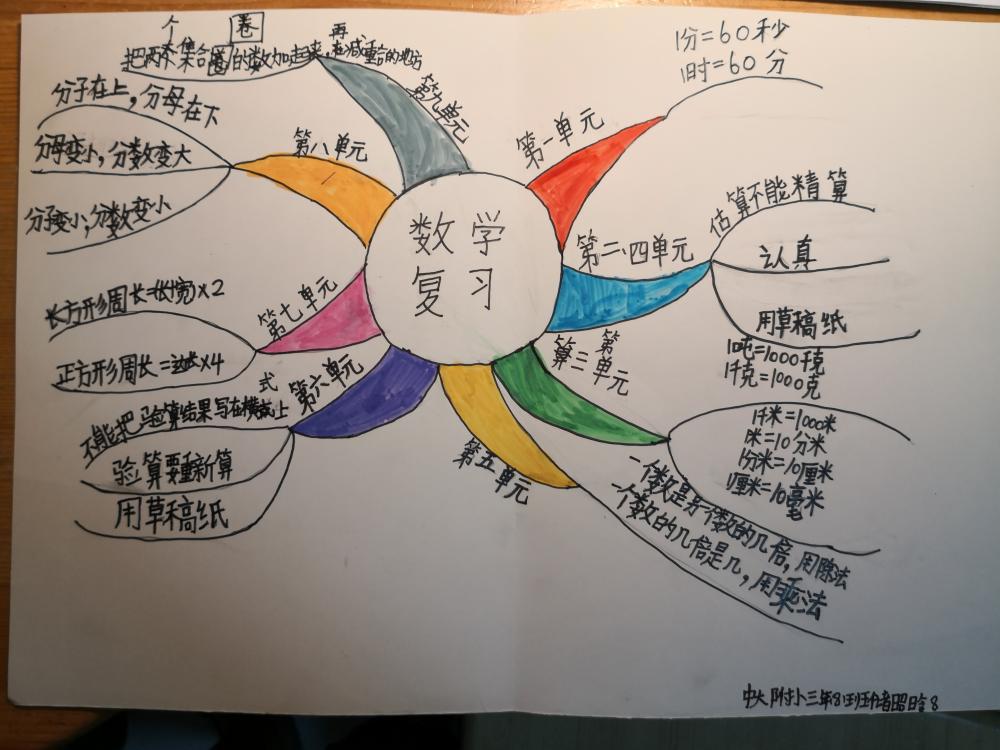 数学
复习
第一单元
1分=60秒
1时=60分
第二、四单元
估算不能精算
认真
用草稿纸
第三单元
1吨=1000千克
1千克=1000克
1千米=1000米
1米=10分米
1分米=10厘米
1厘米=10毫米
第五单元
一个数是另一个数的几倍，用除法
一个数的几倍是几，用乘法
第六单元
不能把验算结果写在横式上
验算要重新算
用草稿纸
第七单元
长方形周长=(长+宽)×2
正方形周长=边长×4
第八单元
分子在上，分母在下
分母变小，分数变大
分子变小，分数变小
第九单元
把两个集合圈的数加起来，再减重合的地方